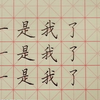 一是我了
一是我了
一是我了